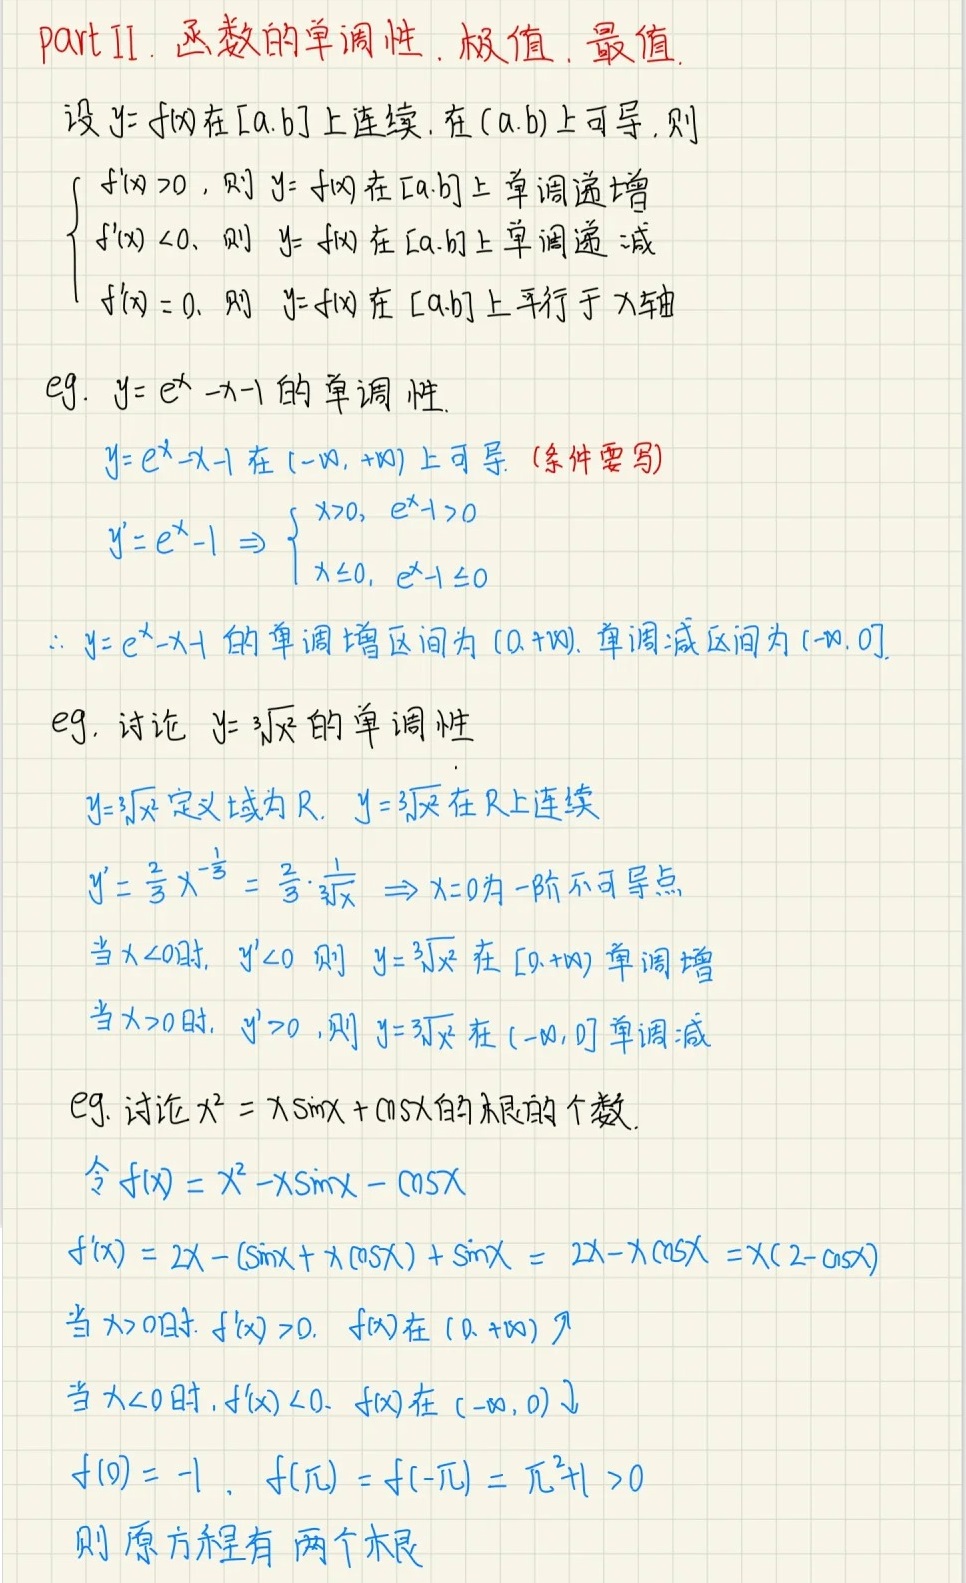 part II. 函数的单调性. 极值. 最值.
设 y=f(x)在[a.b]上连续.在(a.b)上可导.则
f'(x)>0, 则 y=f(x)在[a.b]上单调递增
f'(x)<0、则 y=f(x)在[a.b]上单调递减
f'(x)=0、则 y=f(x)在[a.b]上平行于x轴
eg. y=eˣ-x-1的单调性.
y=eˣ-x-1在(-∞,+∞)上可导.(条件要写)
y'=eˣ-1 ⇒ { x>0, eˣ-1>0
x≤0, eˣ-1≤0
∴ y=eˣ-x-1的单调增区间为(0.+∞).单调减区间为(-∞.0].
eg. 讨论 y=³√x²的单调性
y=³√x²定义域为R. y=³√x²在R上连续
y'=2/3 x^(-1/3) = 2/3·1/³√x ⇒ x=0为一阶不可导点
当x<0时, y'<0 则 y=³√x²在[0.+∞)单调增
当x>0时, y'>0,则 y=³√x²在(-∞,0]单调减
eg. 讨论x²=xsinx+cosx的根的个数.
令f(x)=x²-xsinx-cosx
f'(x)=2x-(sinx+xcosx)+sinx=2x-xcosx=x(2-cosx)
当x>0时. f'(x)>0. f(x)在(0、+∞)↗
当x<0时,f'(x)<0、f(x)在(-∞,0)↘
f(0)=-1, f(π)=f(-π)=π²+1>0
则原方程有两个根